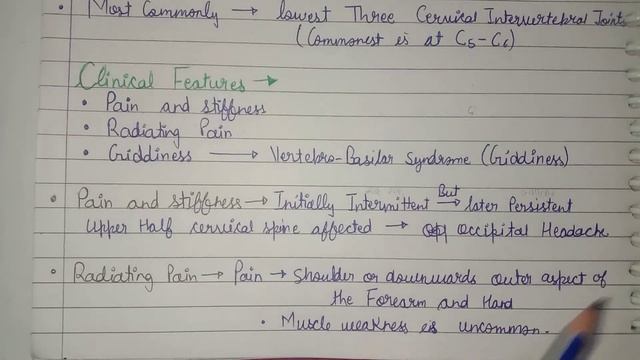 • Most Commonly → lowest Three Cervical Intervertebral Joints
(Commonest is at C5-C6)
Clinical Features →
• Pain and stiffness
• Radiating Pain
• Giddiness → Vertebro-Basilar Syndrome (Giddiness)
• Pain and stiffness → Initially Intermittent But → later Persistent
Upper Half cervical spine affected → Occipital Headache
• Radiating Pain → Pain → Shoulder or downwards outer aspect of
the Forearm and Hand
• Muscle weakness is uncommon.